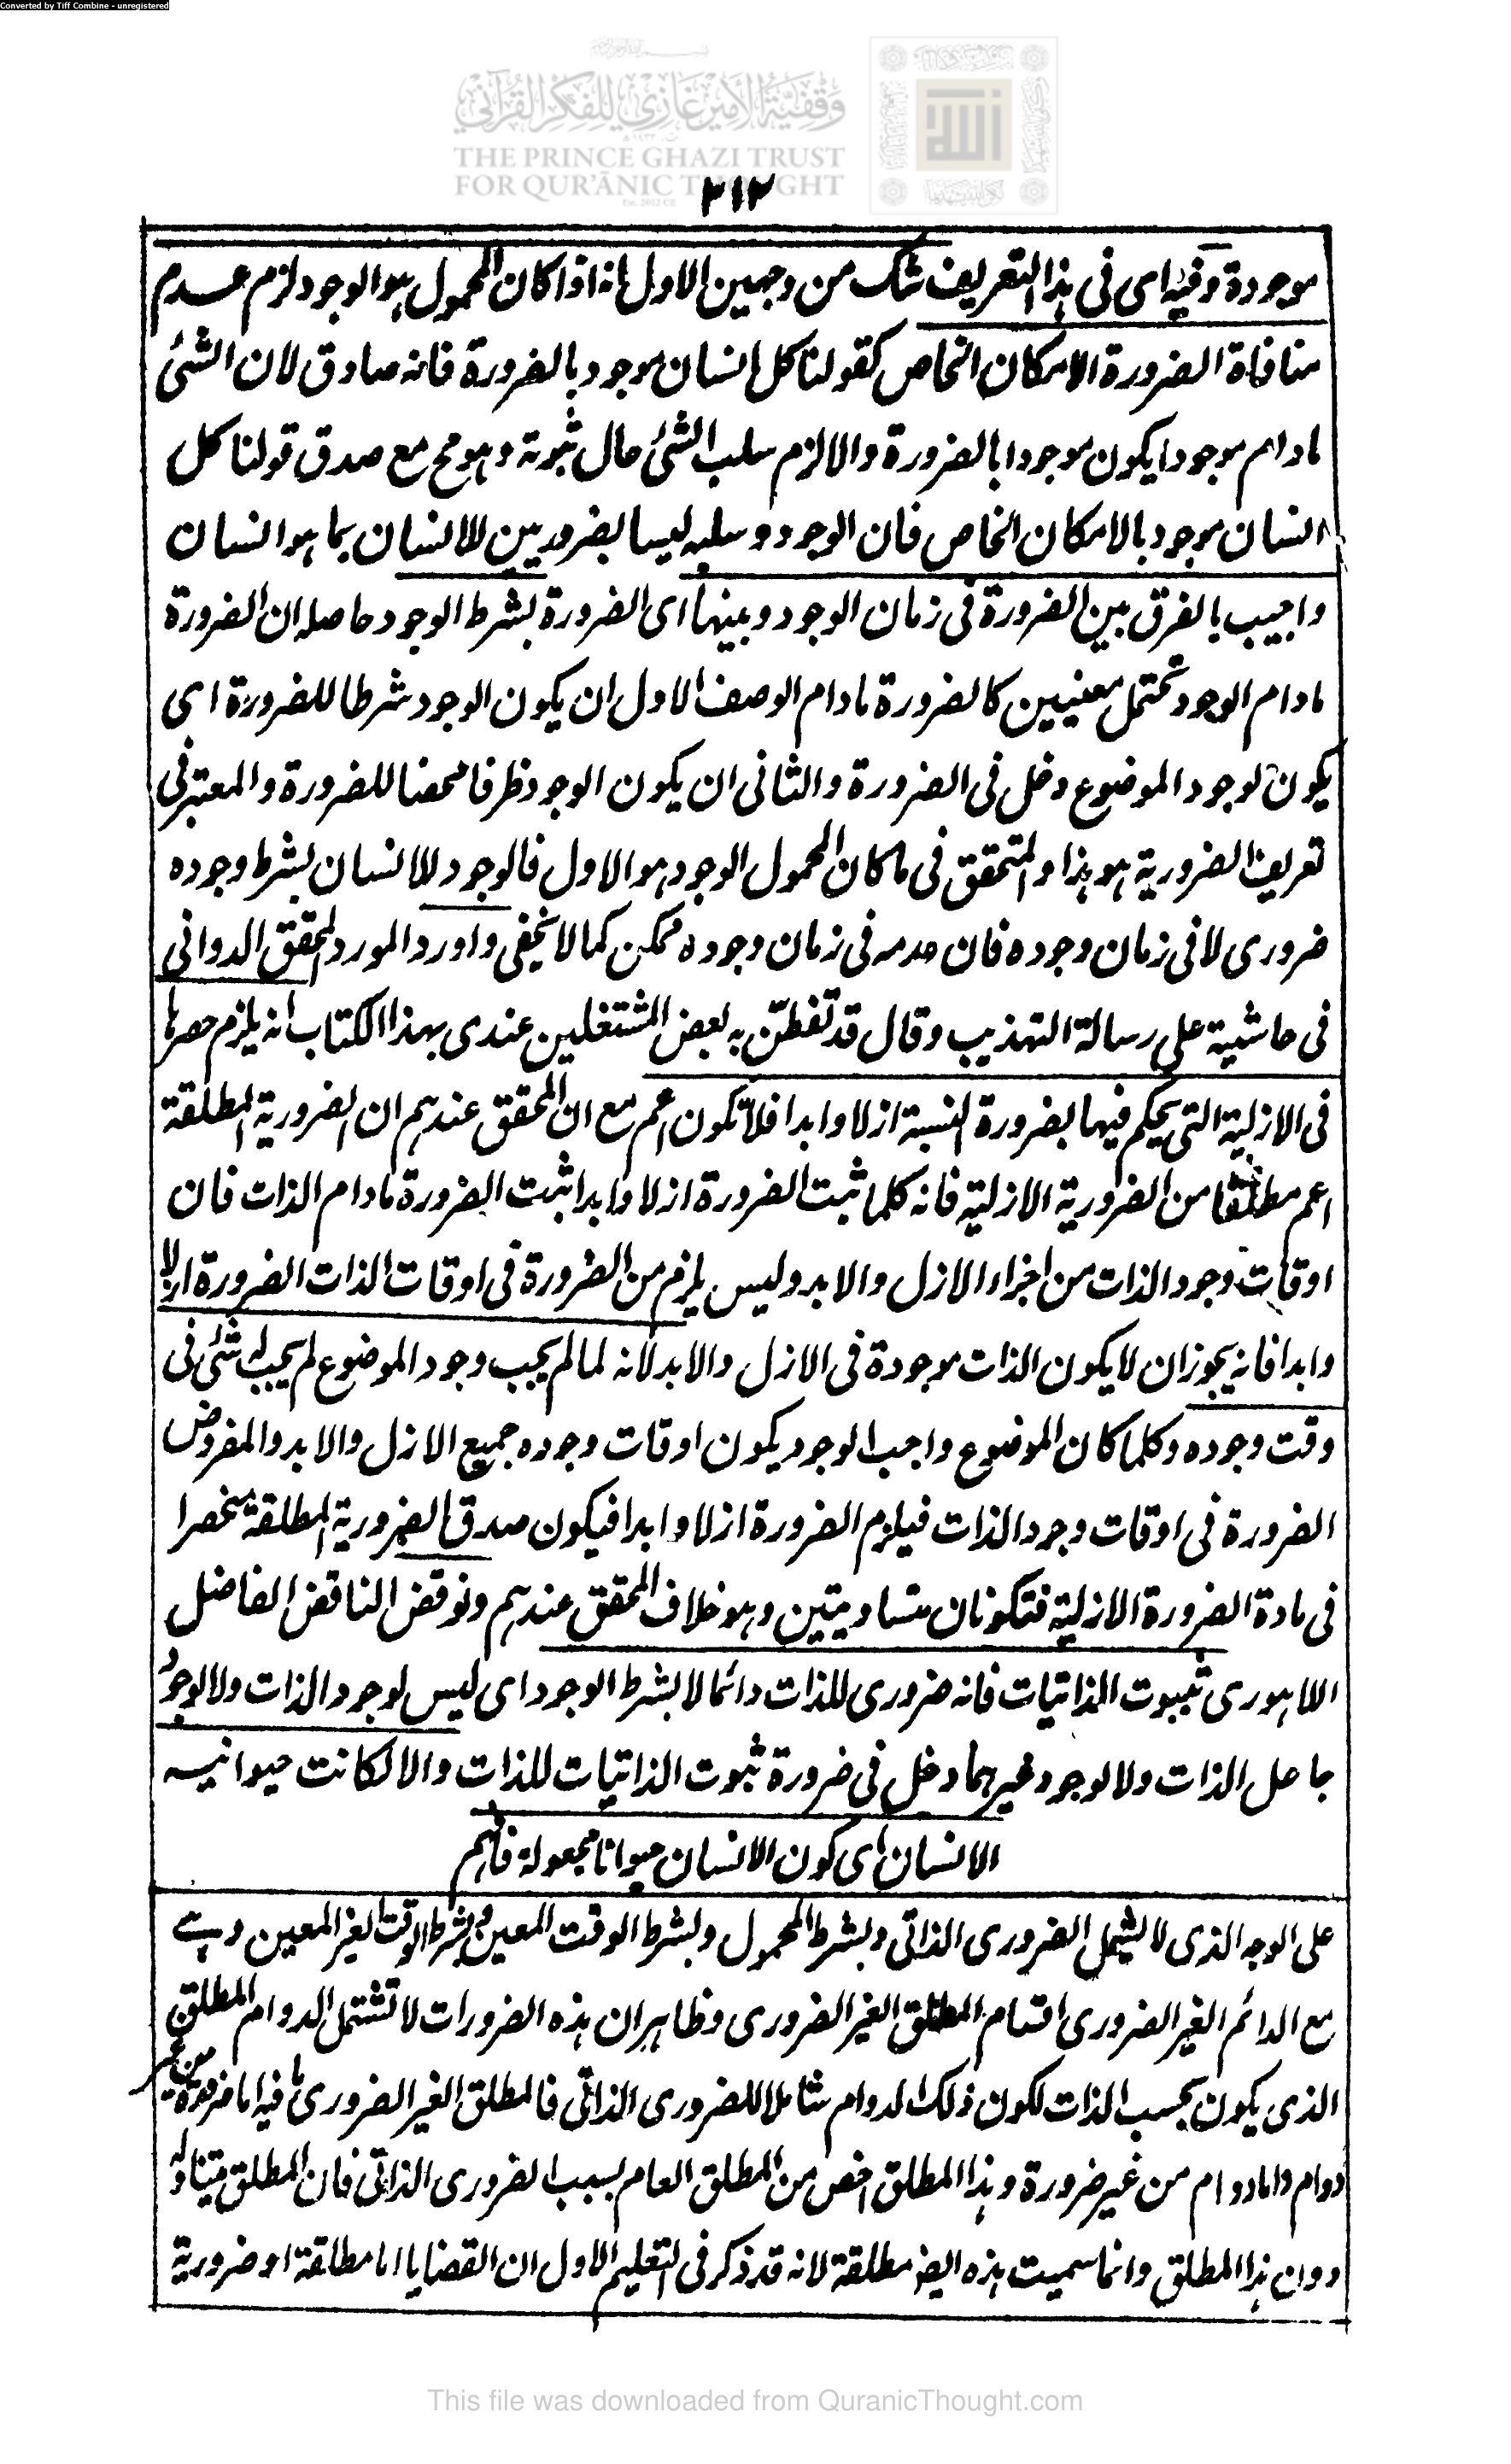 Converted by Tiff Combine - unregistered
وقفية الأمير غازي للفكر القرآني
THE PRINCE GHAZI TRUST
FOR QUR'ĀNIC THOUGHT
Est. 2012 CE
٣١٢
موجودة وفيه اى فى هذا التعريف شك من وجهين الاول انه اذا كان المحمول هو الوجود لزم عدم
منافاة الضرورة الامكان الخاص كقولنا كل انسان موجود بالضرورة فانه صادق لان الشئ
مادام موجودا يكون موجودا بالضرورة والا لزم سلب الشئ حال ثبوته وهو مح مع صدق قولنا كل
انسان موجود بالامكان الخاص فان الوجود وسلبه ليسا بضروريين للانسان بما هو انسان
واجيب بالفرق بين الضرورة فى زمان الوجود وبينها اى الضرورة بشرط الوجود حاصله ان الضرورة
مادام الوجود تحتمل معنيين كالضرورة مادام الوصف الاول ان يكون الوجود شرطا للضرورة اى
يكون لوجود الموضوع دخل فى الضرورة والثانى ان يكون الوجود ظرفا محضا للضرورة والمعتبر فى
تعريف الضرورية هو هذا والمتحقق فى ما كان المحمول الوجود هو الاول فالوجود للانسان بشرط وجوده
ضرورى لا فى زمان وجوده فان عدمه فى زمان وجوده ممكن كما لا يخفى واورد المورد المحقق الدوانى
فى حاشية على رسالة التهذيب وقال قد تفطّن به بعض المشتغلين عندى بهذا الكتاب انه يلزم حصرها
فى الازلية التى يحكم فيها بضرورة النسبة ازلا وابدا فلا تكون اعم مع ان المحقق عندهم ان الضرورية المطلقة
اعم مطلقا من الضرورية الازلية فانه كلما ثبت الضرورة ازلا وابدا ثبت الضرورة مادام الذات فان
اوقات وجود الذات من اجزاء الازل والابد وليس يلزم من الضرورة فى اوقات الذات الضرورة ازلا
وابدا فانه يجوز ان لا يكون الذات موجودة فى الازل والابد لانه لما لم يجب وجود الموضوع لم يجب له شئ فى
وقت وجوده وكلما كان الموضوع واجب الوجود يكون اوقات وجوده جميع الازل والابد والمفروض
الضرورة فى اوقات وجود الذات فيلزم الضرورة ازلا وابدا فيكون صدق الضرورية المطلقة منحصرا
فى مادة الضرورة الازلية فتكونان متساويتين وهو خلاف المحقق عندهم ونوقض الناقض الفاضل
اللاهورى بثبوت الذاتيات فانه ضرورى للذات دائما لا بشرط الوجود اى ليس لوجود الذات ولا لوجود
جاعل الذات ولا لوجود غيرهما دخل فى ضرورة ثبوت الذاتيات للذات والا لكانت حيوانية
الانسان اى كون الانسان حيوانا مجعولة فافهم
على الوجه الذى لا يشمل الضرورى الذاتى وبشرط المحمول وبشرط الوقت المعين وبشرط الوقت الغير المعين وهى
مع الدائم الغير الضرورى اقسام المطلق الغير الضرورى وظاهر ان هذه الضرورات لا تشتمل الدوام المطلق
الذى يكون بحسب الذات لكون ذلك الدوام شاملا للضرورى الذاتى فالمطلق الغير الضرورى ما فيه اما ضرورة من غير
دوام واما دوام من غير ضرورة وهذا المطلق اخص من المطلق العام بسبب الضرورى الذاتى فان المطلق يتناوله
دون هذا المطلق وانما سميت هذه ايضا مطلقة لانه قد ذكر فى التعليم الاول ان القضايا اما مطلقة او ضرورية
This file was downloaded from QuranicThought.com